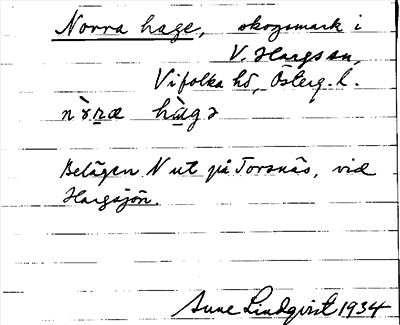 Norra hage, skogsmark i
V. Hargs sn,
Vifolka hd, Österg. l.
Belägen N ut på Torsnäs, vid
Hargsjön.
Sune Lindqvist 1934